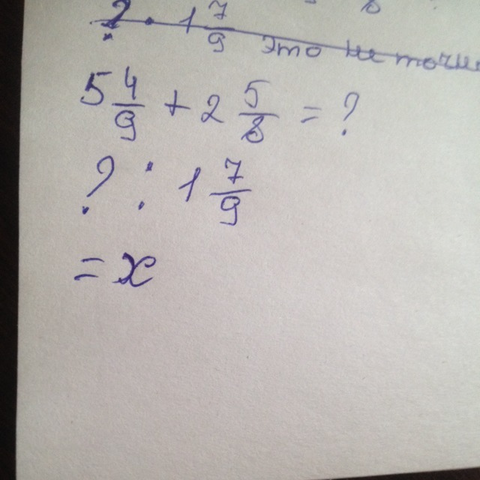 ? : 1 7/9 это не точно
5 4/9 + 2 5/8 = ?
? : 1 7/9
= x